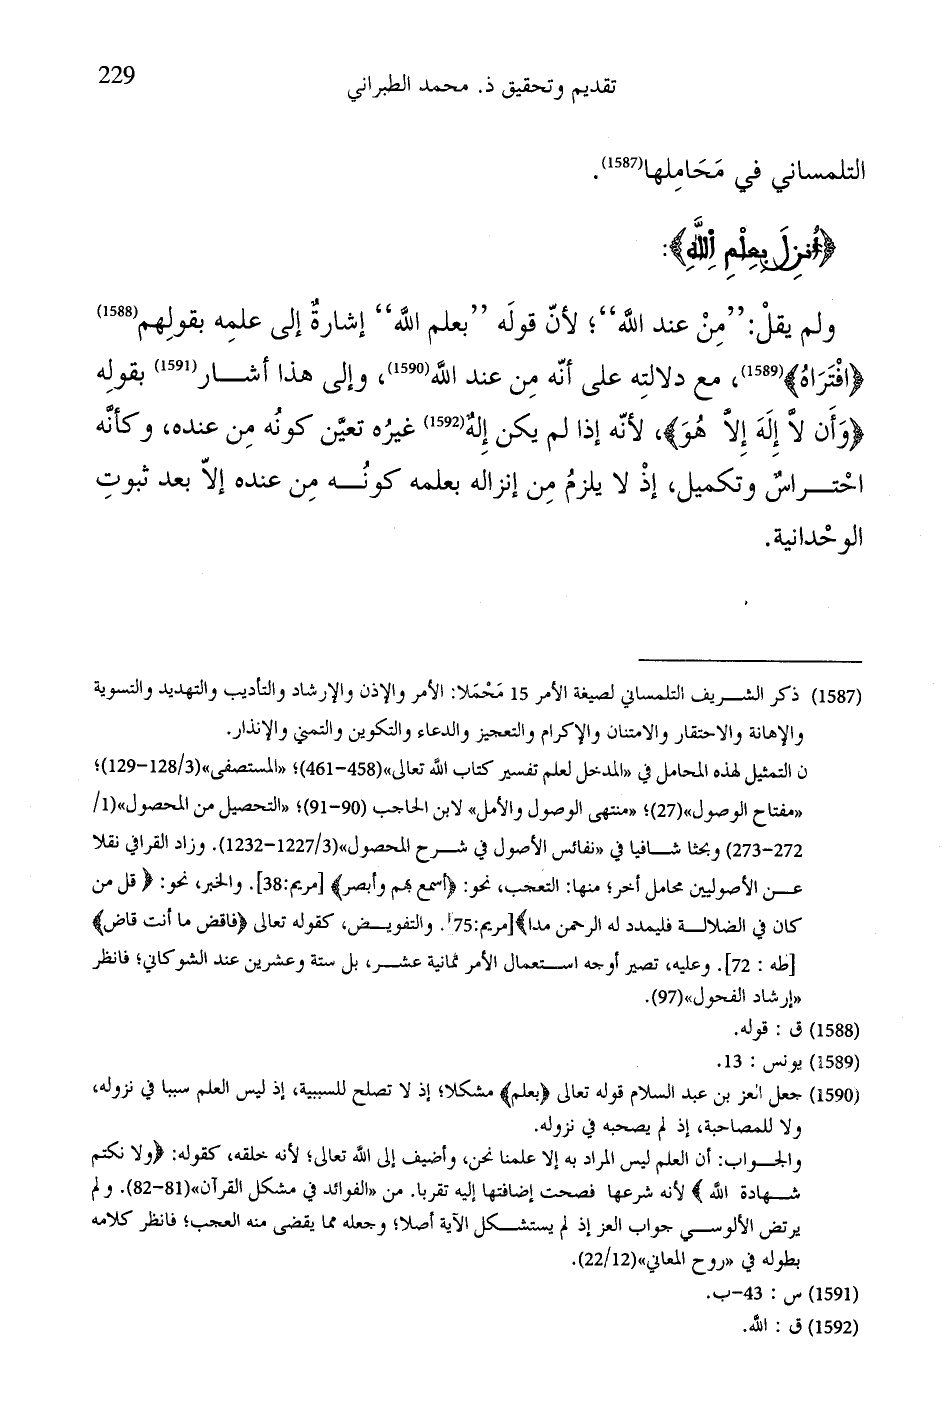 229
تقديم وتحقيق ذ. محمد الطبراني
التلمساني في مَحَامِلها(1587).
﴿أُنزِلَ بِعِلْمِ اِللَّهِ﴾:
ولم يقلْ: ’’مِنْ عند الله‘‘؛ لأنّ قولَه ’’بعلم الله‘‘ إشارةٌ إلى علمِه بقولهم(1588)
﴿افْتَرَاهُ﴾(1589)، مع دلالتِه على أنّه مِن عند الله(1590)، وإلى هذا أشـــار(1591) بقولِه
﴿وَأَن لاَّ إِلَهَ إِلاَّ هُوَ﴾، لأنّه إذا لم يكن إلهٌ(1592) غيرُه تعيَّن كونُه مِن عنده، وكأنَّه
احْتـــراسٌ وتكميل، إذْ لا يلزمُ مِن إنزاله بعلمه كونُـــه مِن عنده إلاّ بعد ثبوتِ
الوحْدانية.
(1587) ذكر الشـــريف التلمساني لصيغة الأمر 15 مَحْمَلا: الأمر والإذن والإرشاد والتأديب والتهديد والتسوية
والإهانة والاحتقار والامتنان والإكرام والتعجيز والدعاء والتكوين والتمني والإنذار.
ن التمثيل لهذه المحامل في «المدخل لعلم تفسير كتاب الله تعالى»(458-461)؛ «المستصفى»(128/3-129)؛
«مفتاح الوصول»(27)؛ «منتهى الوصول والأمل» لابن الحاجب (90-91)؛ «التحصيل من المحصول»(1/
272-273) وبحثا شـــافيا في «نفائس الأصول في شـــرح المحصول»(1227/3-1232). وزاد القرافي نقلا
عـــن الأصوليين محامل أخر؛ منها: التعجب، نحو: ﴿أسمع بهم وأبصر﴾ [مريم:38]. والخبر، نحو: ﴿ قل من
كان في الضلالـــة فليمدد له الرحمن مدا﴾[مريم:75]. والتفويـــض، كقوله تعالى ﴿فاقض ما أنت قاض﴾
[طه : 72]. وعليه، تصير أوجه اســـتعمال الأمر ثمانية عشـــر، بل ستة وعشرين عند الشوكاني؛ فانظر
«إرشاد الفحول»(97).
(1588) ق : قوله.
(1589) يونس : 13.
(1590) جعل العز بن عبد السلام قوله تعالى ﴿بعلم﴾ مشكلا؛ إذ لا تصلح للسببية، إذ ليس العلم سببا في نزوله،
ولا للمصاحبة، إذ لم يصحبه في نزوله.
والجـــواب: أن العلم ليس المراد به إلا علمنا نحن، وأضيف إلى الله تعالى؛ لأنه خلقه، كقوله: ﴿ولا نكتم
شـــهادة الله ﴾ لأنه شرعها فصحت إضافتها إليه تقربا. من «الفوائد في مشكل القرآن»(81-82). ولم
يرتض الألوســـي جواب العز إذ لم يستشـــكل الآية أصلا؛ وجعله مما يقضى منه العجب؛ فانظر كلامه
بطوله في «روح المعاني»(22/12).
(1591) س : 43-ب.
(1592) ق : الله.